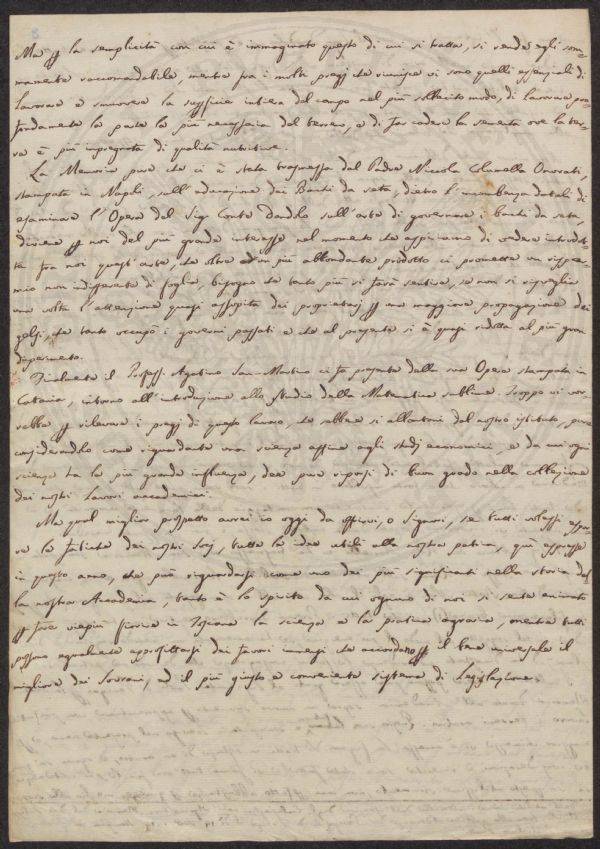 8
Ma per la semplicità con cui è immaginato questo di cui si tratta, si rende egli som-
mamente raccomandabile, mentre fra i molti pregj che riunisce vi sono quelli essenziali di
lavorare e smuovere la superficie intiera del campo nel più sollecito modo, di lavorare pro-
fondamente la parte la più necessaria del terreno, e di far cadere la sementa ove la ter-
ra è più impregnata di qualità nutritive.
La Memoria pure che ci è stata trasmessa dal Padre Niccola Columella Onorati,
stampata in Napoli, sull'educazione dei Bachi da seta, dietro l'incumbenza datali di
esaminare l'Opera del Sig. Conte Dandolo sull'arte di governare i bachi da seta,
diviene per noi del più grande interesse nel momento che aspiriamo di vedere introdot-
ta fra noi quest'arte, che oltre ad un più abbondante prodotto ci promette un rispar-
mio non indifferente di foglia, bisogno che tanto più si farà sentire, se non si risveglia
una volta l'attenzione quasi assopita dei proprietarj per una maggiore propagazione dei
gelsi, che tanto occupò i governi passati e che al presente si è quasi ridotta al più gran
deperimento.
Finalmente il Profess. Agatino San-Martino ci fa presente della sua Opera stampata in
Catania, intorno all'introduzione allo studio della Matematica sublime. Troppo vi vor-
rebbe per rilevare i pregj di questo lavoro, che sebbene si allontani dal nostro istituto, pure
considerandolo come riguardante una scienza affine agli studj economici, e da cui ogni
scienza ha la più grande influenza, dee pure riporsi di buon grado nella collezione
dei nostri lavori accademici.
Ma qual miglior prospetto avrei io oggi da offrirvi, o Signori, se tutti volessi espor-
re le fatiche dei nostri Socj, tutte le idee utili alla nostra patria, quì espresse
in questo anno, che può riguardarsi come uno dei più significanti nella storia del-
la nostra Accademia, tanto è lo spirito da cui ognuno di noi si sente animato
per fare viepiù fiorire in Toscana la scienza e la pratica agraria, mentre tutti
possono egualmente approfittarsi dei favori immensi che accordano per il bene universale il
migliore dei Sovrani, ed il più giusto e conveniente sistema di Legislazione.